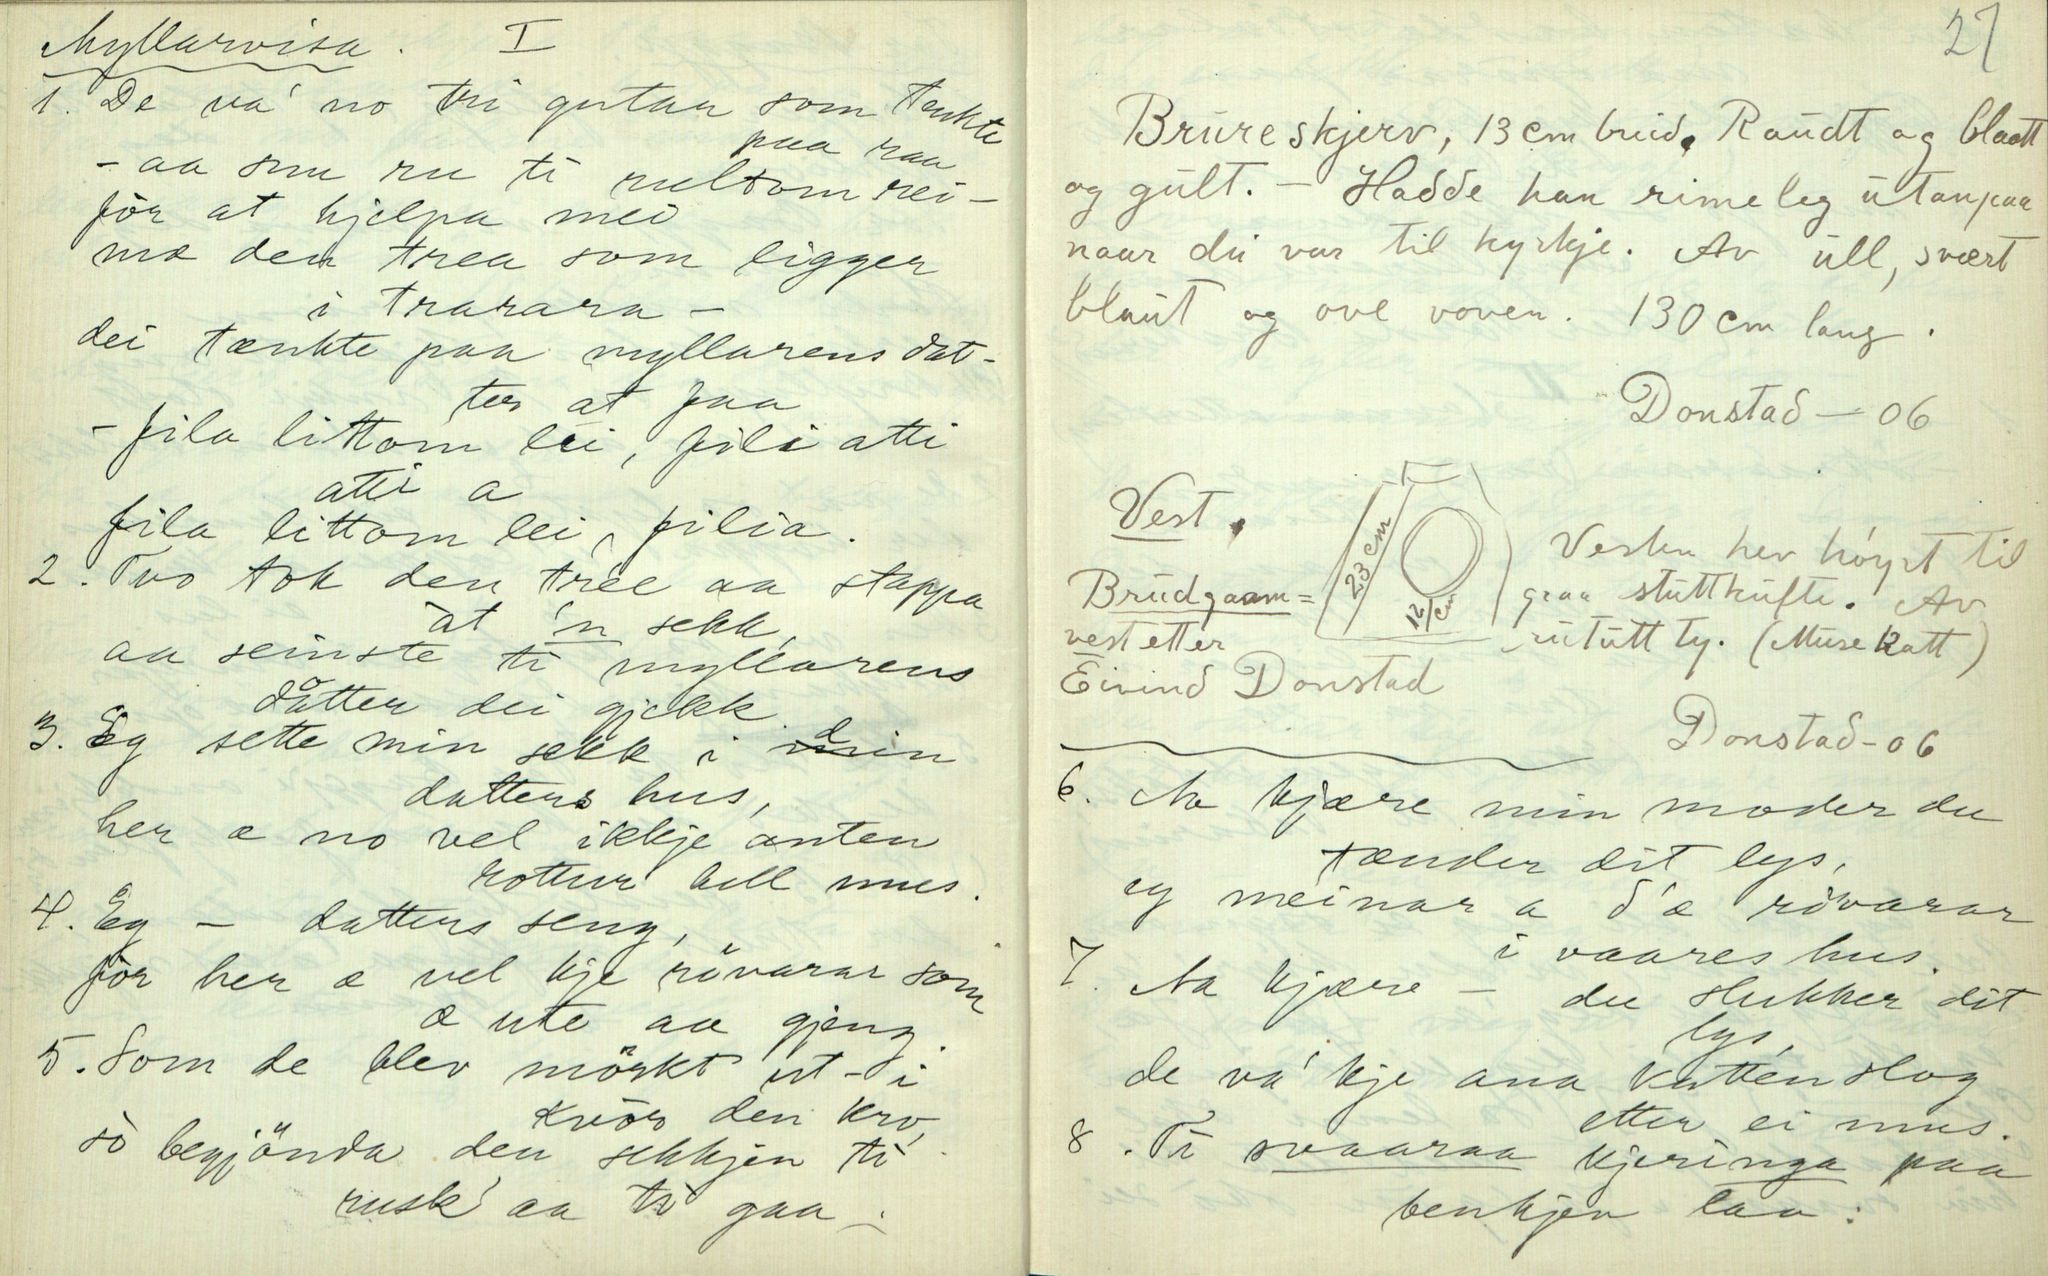 Myllarvisa. I
1. De va' no tri gutar som tenkte
paa raa
- aa snu ru ti rultom rei -
før at hjelpa mei
mæ den trea som ligger
i trarara -
dei tænkte paa myllarens dat-
ter at faa
- fila littom lei, fili atti
atti a
fila littom lei, filia.
2. Two tok den tree aa stappa
åt 'n sekk,
aa seinste ti myllarens
dåtter dei gjekk.
3. Eg sette min sekk i din
datters hus,
her æ no vel ikkje anten
rottur hell mus.
4. Eg - datters seng,
før her æ vel kje røvarar som
æ ute aa gjeng.
5. Som de blev mörkt ut - i
kvör den kro,
so begjönda den sekkjen ti
rusk' aa ti gaa.
27
Brureskjerv, 13 cm breid. Raudt og blaatt
og gult. - Hadde han rimeleg utanpaa
naar du var til kyrkje. Av ull, svært
blaut og ovl voven. 130 cm lang.
Donstad - 06
Vest.
23 cm
12 cm
Brudgaam=
vest etter
Eivind Donstad
Vesten hev höyrt til
graa stuttkufte. Av
rututt ty. (Muse katt)
Donstad - 06
6. Aa kjære min moder du
tænder dit lys,
eg meinar a d'æ røvarar
i vaares hus.
7. Aa kjære - du slukker dit
lys,
de va' kje ana katten slog
etter ei mus.
8. Ti svaaraa kjeringa paa
benkjen laa: